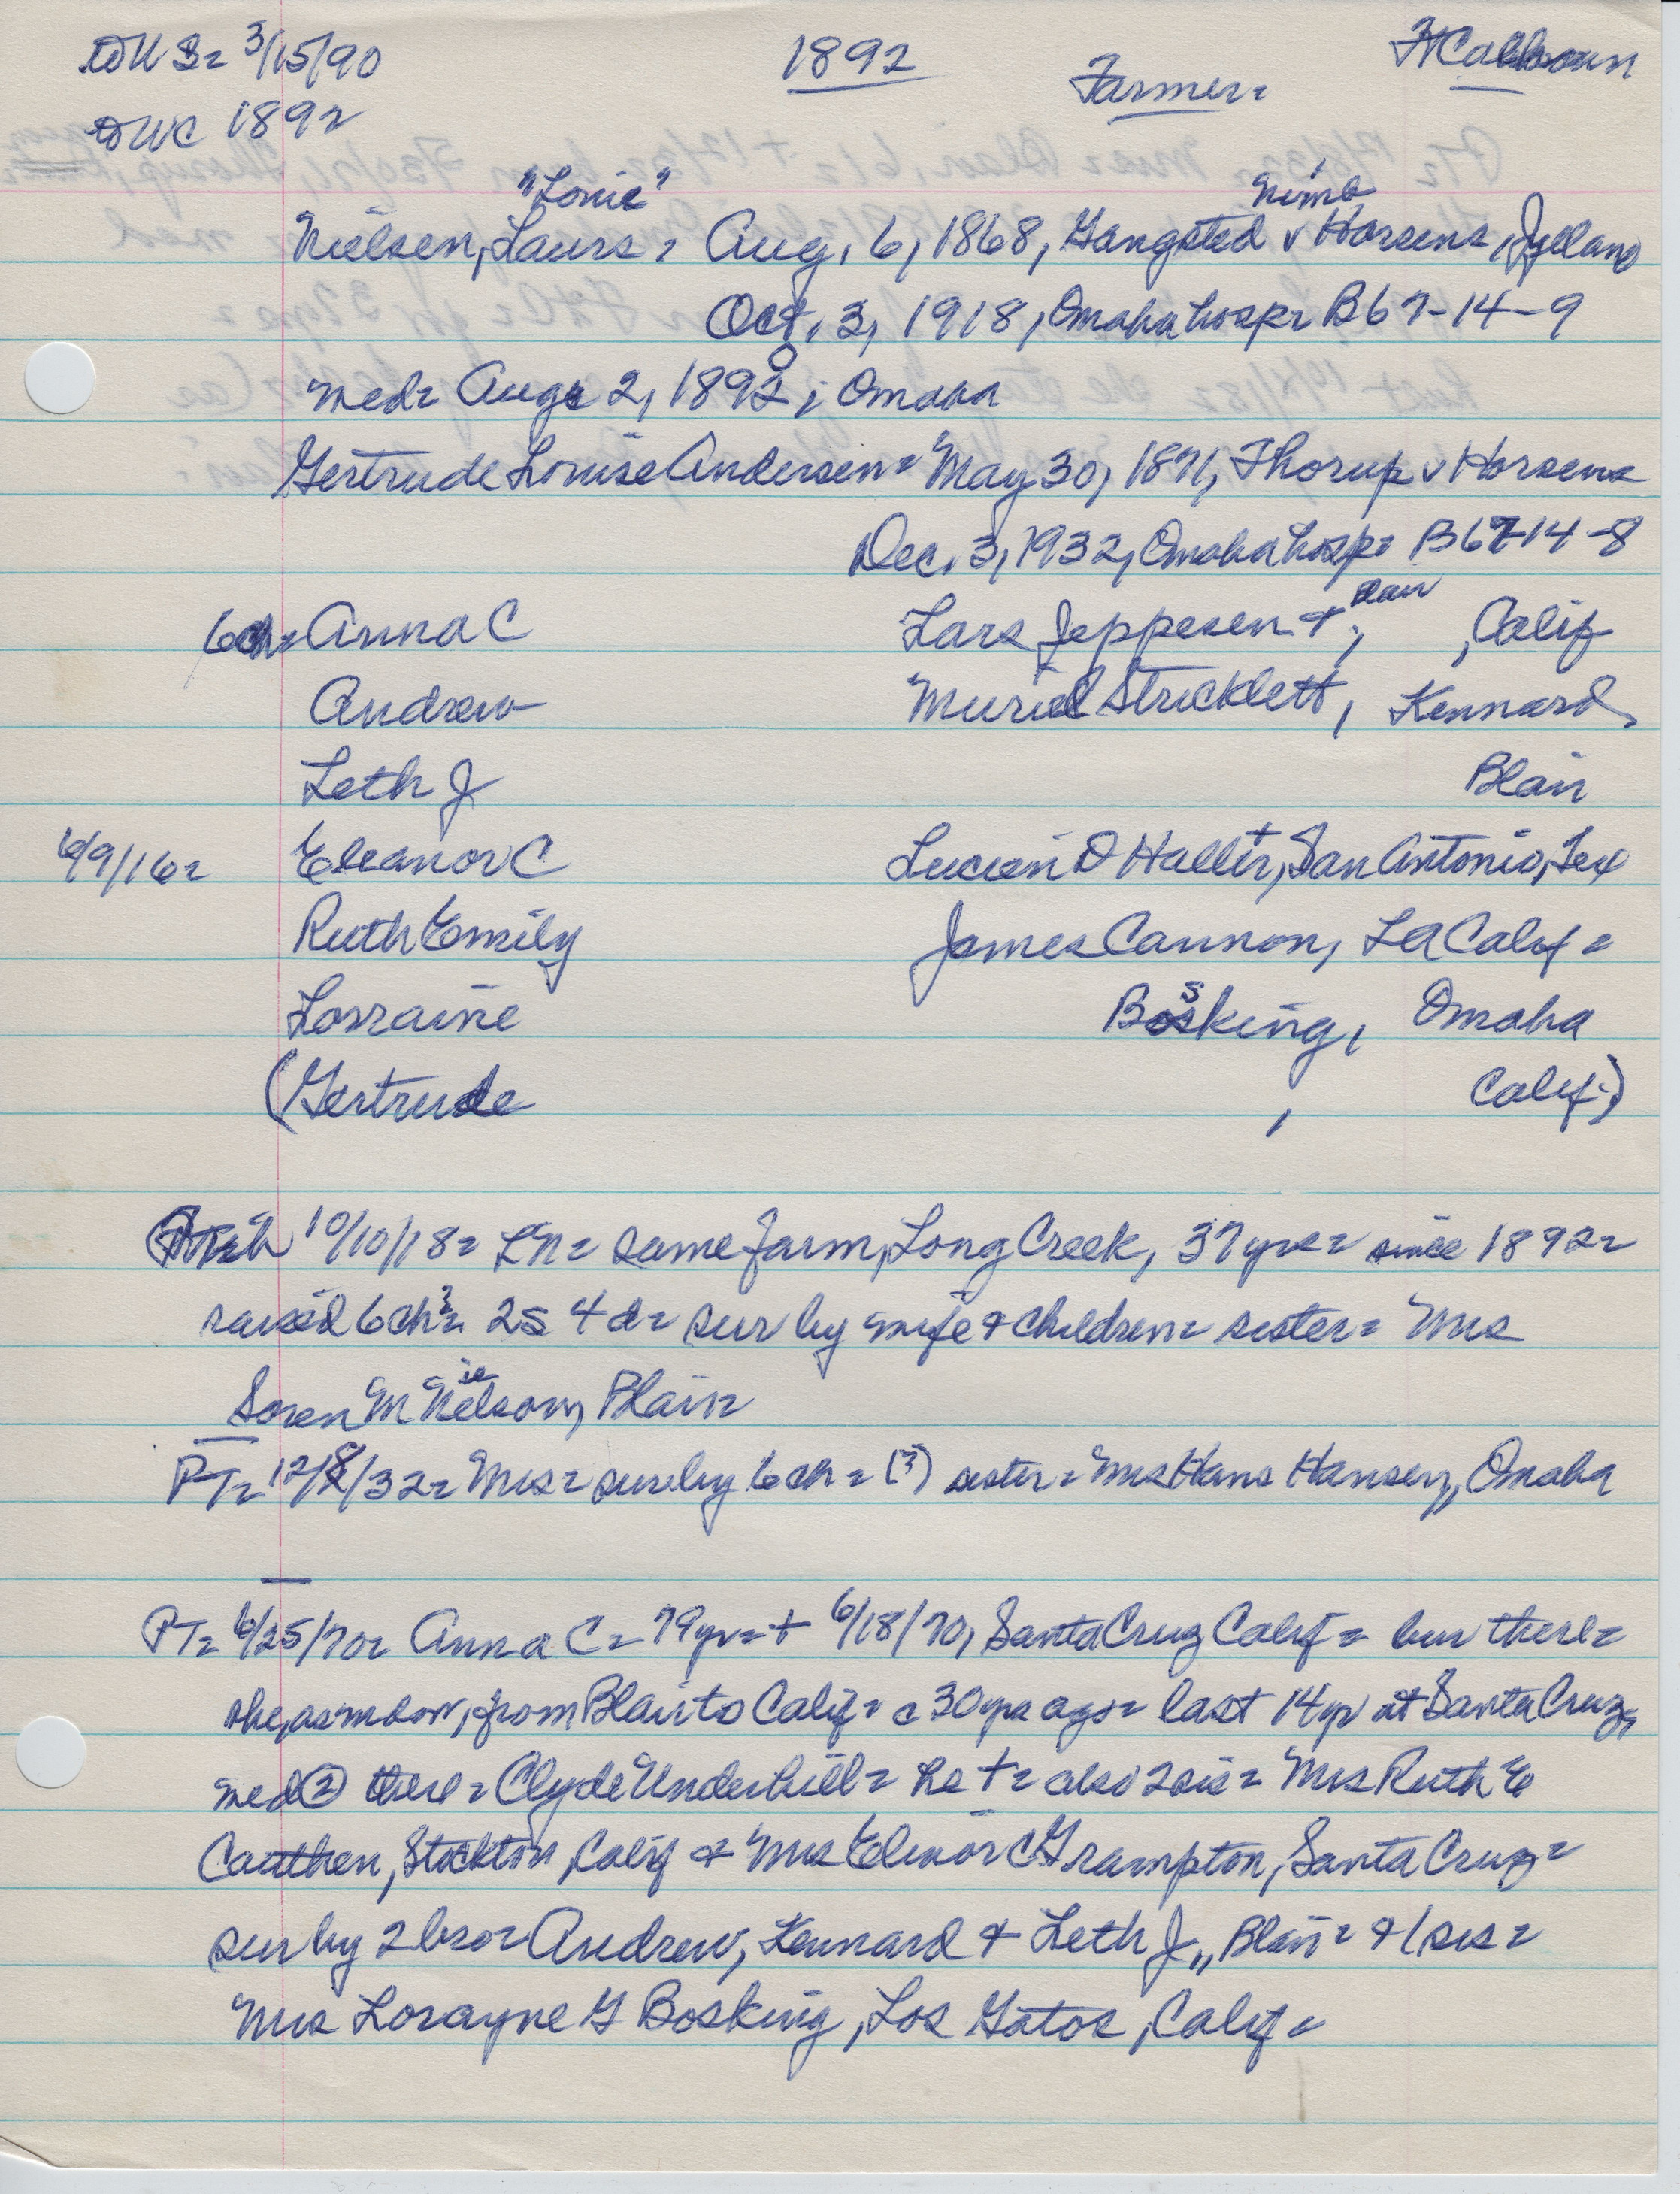 DUS= 3/15/90 1892 Farmer= Ft Calhoun
DWC 1892
"Louie" Nimb
Nielsen, Laurs= Aug. 6, 1868, Gangsted v Horsens, Jylland
Oct. 3, 1918, Omaha hosp= B67-14-9
med= Aug 2, 1890; Omaha
Gertrude Louise Andersen= May 30, 1871, Thorup v Horsens
Dec. 3, 1932, Omaha hosp= B67-14-8
6ch= Anna C Lars Jeppesen +, Calif
Andrew Muriel Stricklett, Kennard,
Leth J Blair
6/9/16= Eleanor C Lucien D Haller, San Antonio, Tex
Ruth Emily James Cannon, LA Calif=
Lorraine Bosking, Omaha
(Gertrude , Calif.)
10/10/18= LN= same farm, Long Creek, 37 yrs= since 1892=
raised 6ch= 2s 4d= sur by wife & children= sister= Mrs
Soren M Nielsen, Blair=
PT= 12/8/32= Mrs= sur by 6ch= (3) sister= Mrs Hans Hansen,, Omaha
PT= 6/25/70= Anna C= 79yr=+ 6/18/70, Santa Cruz Calif= bur there=
she, as widow, from Blair to Calif= c 30yrs ago= last 14yr at Santa Cruz,
med ② there= Clyde Underhill= he += also 2 sis= Mrs Ruth E
Cauthen, Stockton, Calif & Mrs Elinor C Grampton, Santa Cruz=
sur by 2 bro= Andrew, Kennard & Leth J,, Blair= & 1 sis=
Mrs Lorayne G Bosking, Los Gatos, Calif=